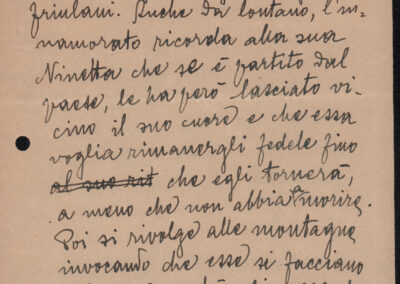 friulani. Anche da lontano, l'in-
namorato ricorda alla sua
Ninetta che se è partito dal
paese, le ha però lasciato vi-
cino il suo cuore e che essa
voglia rimanergli fedele fino
al suo rit che egli tornerà,
a meno che non abbia a morire.
Poi si rivolge alle montagne
invocando che esse si facciano